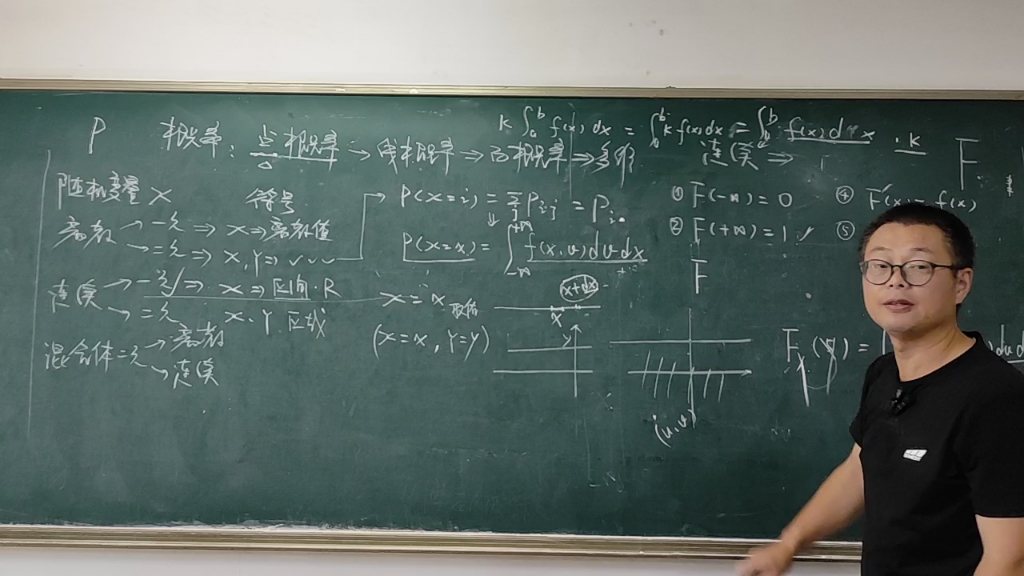 P 概率: 点概率 → 线概率 → 面概率 ⇒ 多维
k ∫_a^b f(x) dx = ∫_a^b k f(x) dx = ∫_a^b f(x) dx · k
连续 ⇒
F
随机变量 X 符号
离散 → 一元 ⇒ X ⇒ 离散值
→ 二元 ⇒ X, Y ⇒
连续 → 一元 ⇒ X ⇒ 区间 · R
→ 二元 X · Y 区域
混合体 二元 → 离散
→ 连续
P(X=i) = Σ_j P_{ij} = P_{i·}
P(X=x) = ∫_{-∞}^{+∞} f(x,v) dv dx
X = x 取值
(X=x, Y=y)
x+dx
x
y
① F(-∞) = 0
② F(+∞) = 1
④ F'(x) = f(x)
⑤
F
(u,v)
F_X(x) =
dv du